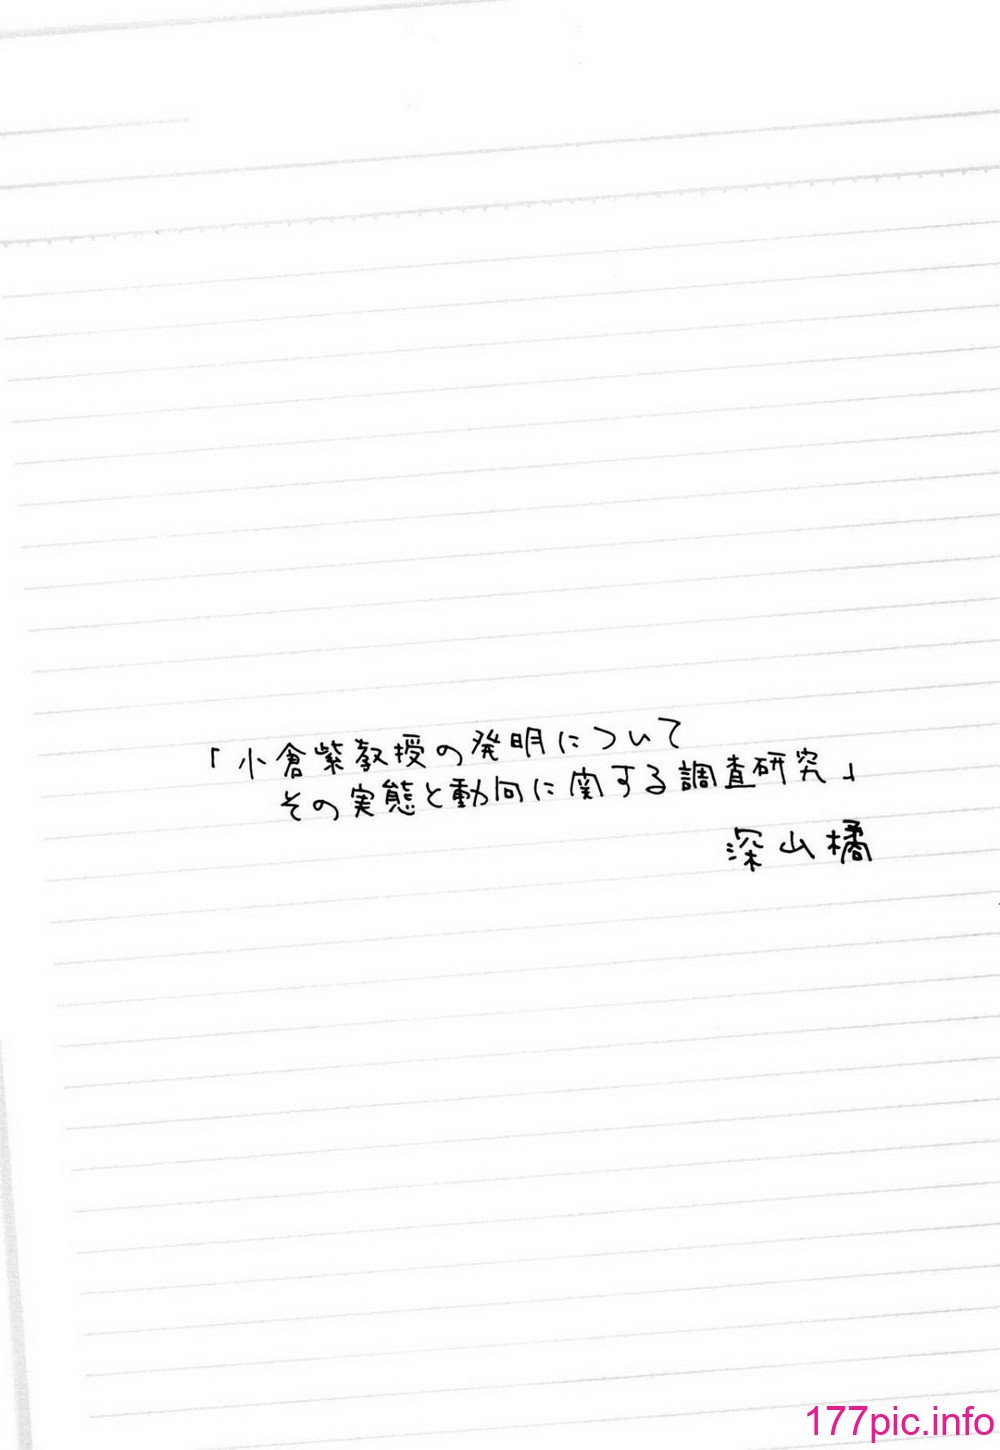 「小倉紫教授の発明について
その実態と動向に関する調査研究」
深山橘
177pic.info